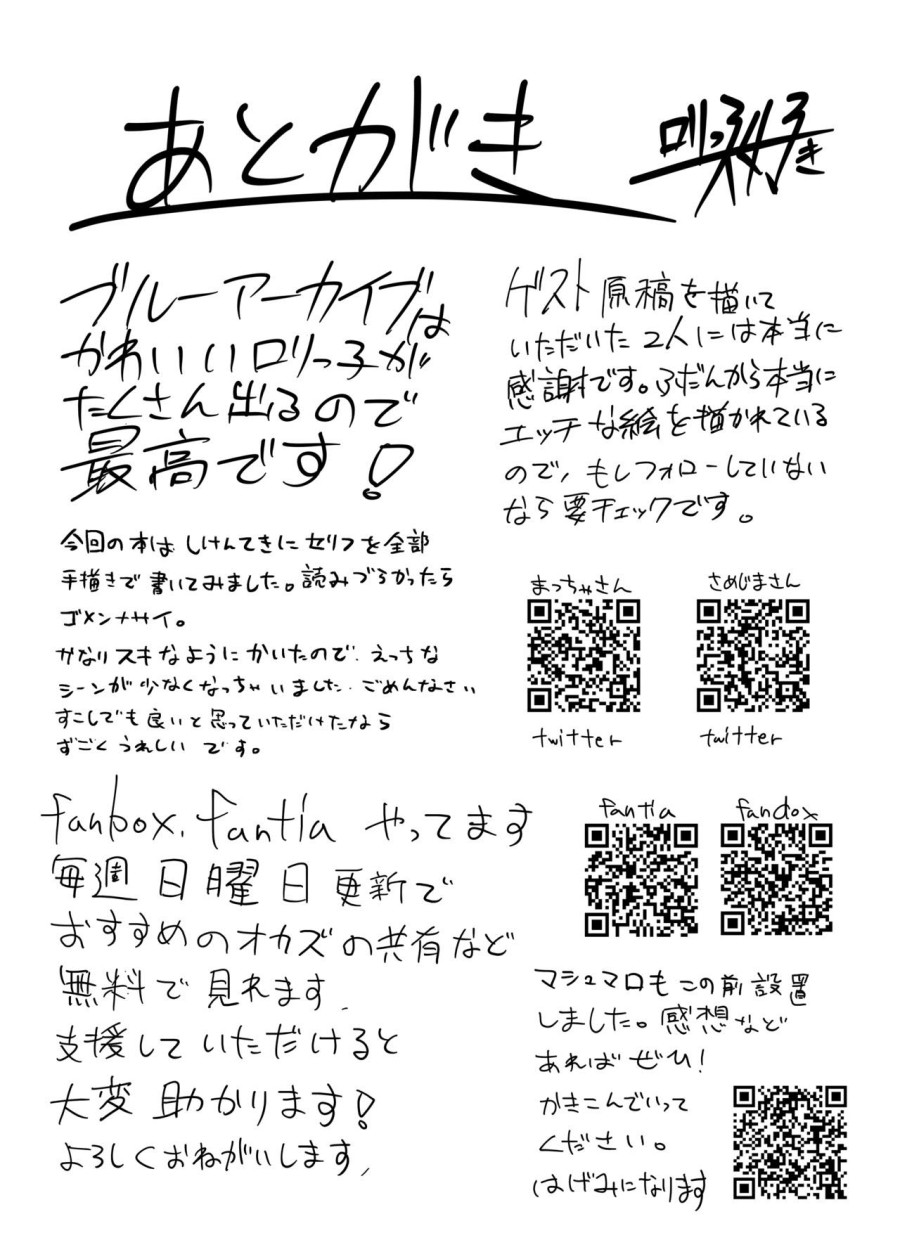 あとがき
ロリっ子大好き
ブルーアーカイブは
かわいいロリっ子が
たくさん出るので
最高です!
今回の本は しけんてきに セリフを全部
手描きで 書いてみました。読みづらかったら
ゴメンナサイ。
かなりスキなようにかいたので、えっちな
シーンが少なくなっちゃいました、ごめんなさい
すこしでも良いと思っていただけたなら
すごくうれしいです。
fanbox、fantia やってます
毎週日曜日更新で
おすすめのオカズの共有など
無料で見れます、
支援していただけると
大変助かります!
よろしくおねがいします、
ゲスト原稿を描いて
いただいた2人には本当に
感謝です。ふだんから本当に
エッチな絵を描かれている
ので、もしフォローしていない
なら要チェックです。
まっちゃさん
さめじまさん
twitter
twitter
fantia
fanbox
マシュマロもこの前設置
しました。感想など
あればぜひ!
かきこんでいって
ください。
はげみになります